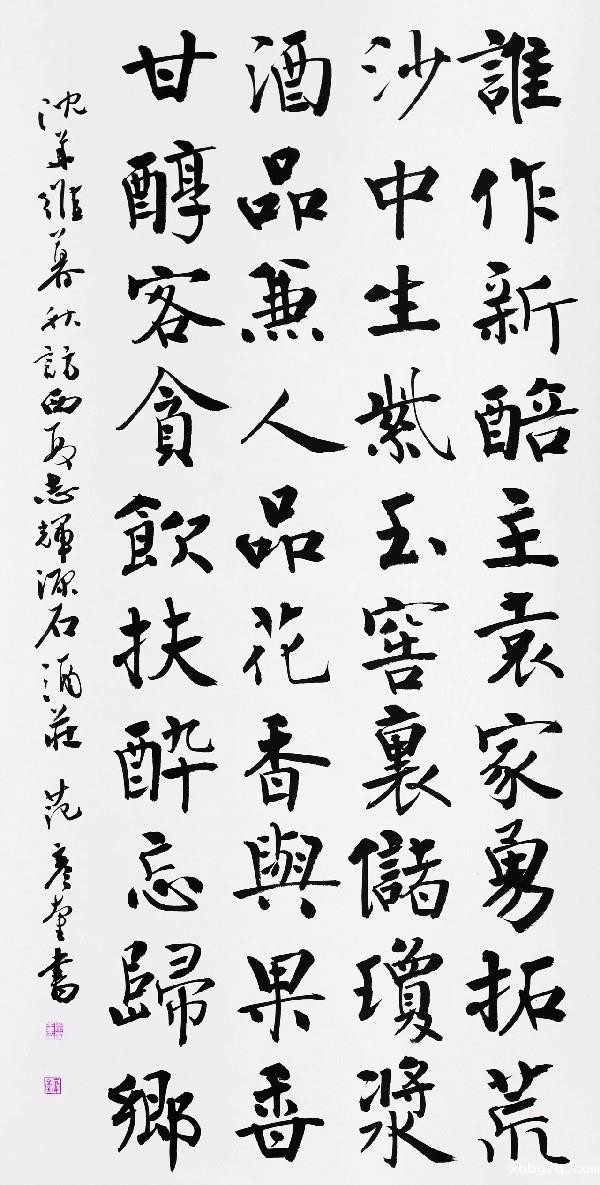 誰作新醅主袁家勇拓荒
沙中生紫玉窖裏儲瓊漿
酒品兼人品花香與果香
甘醇客貪飲扶醉忘歸鄉
沈華維暮秋訪西夏志輝源石酒莊 范彥奎書
xbbyzq.com